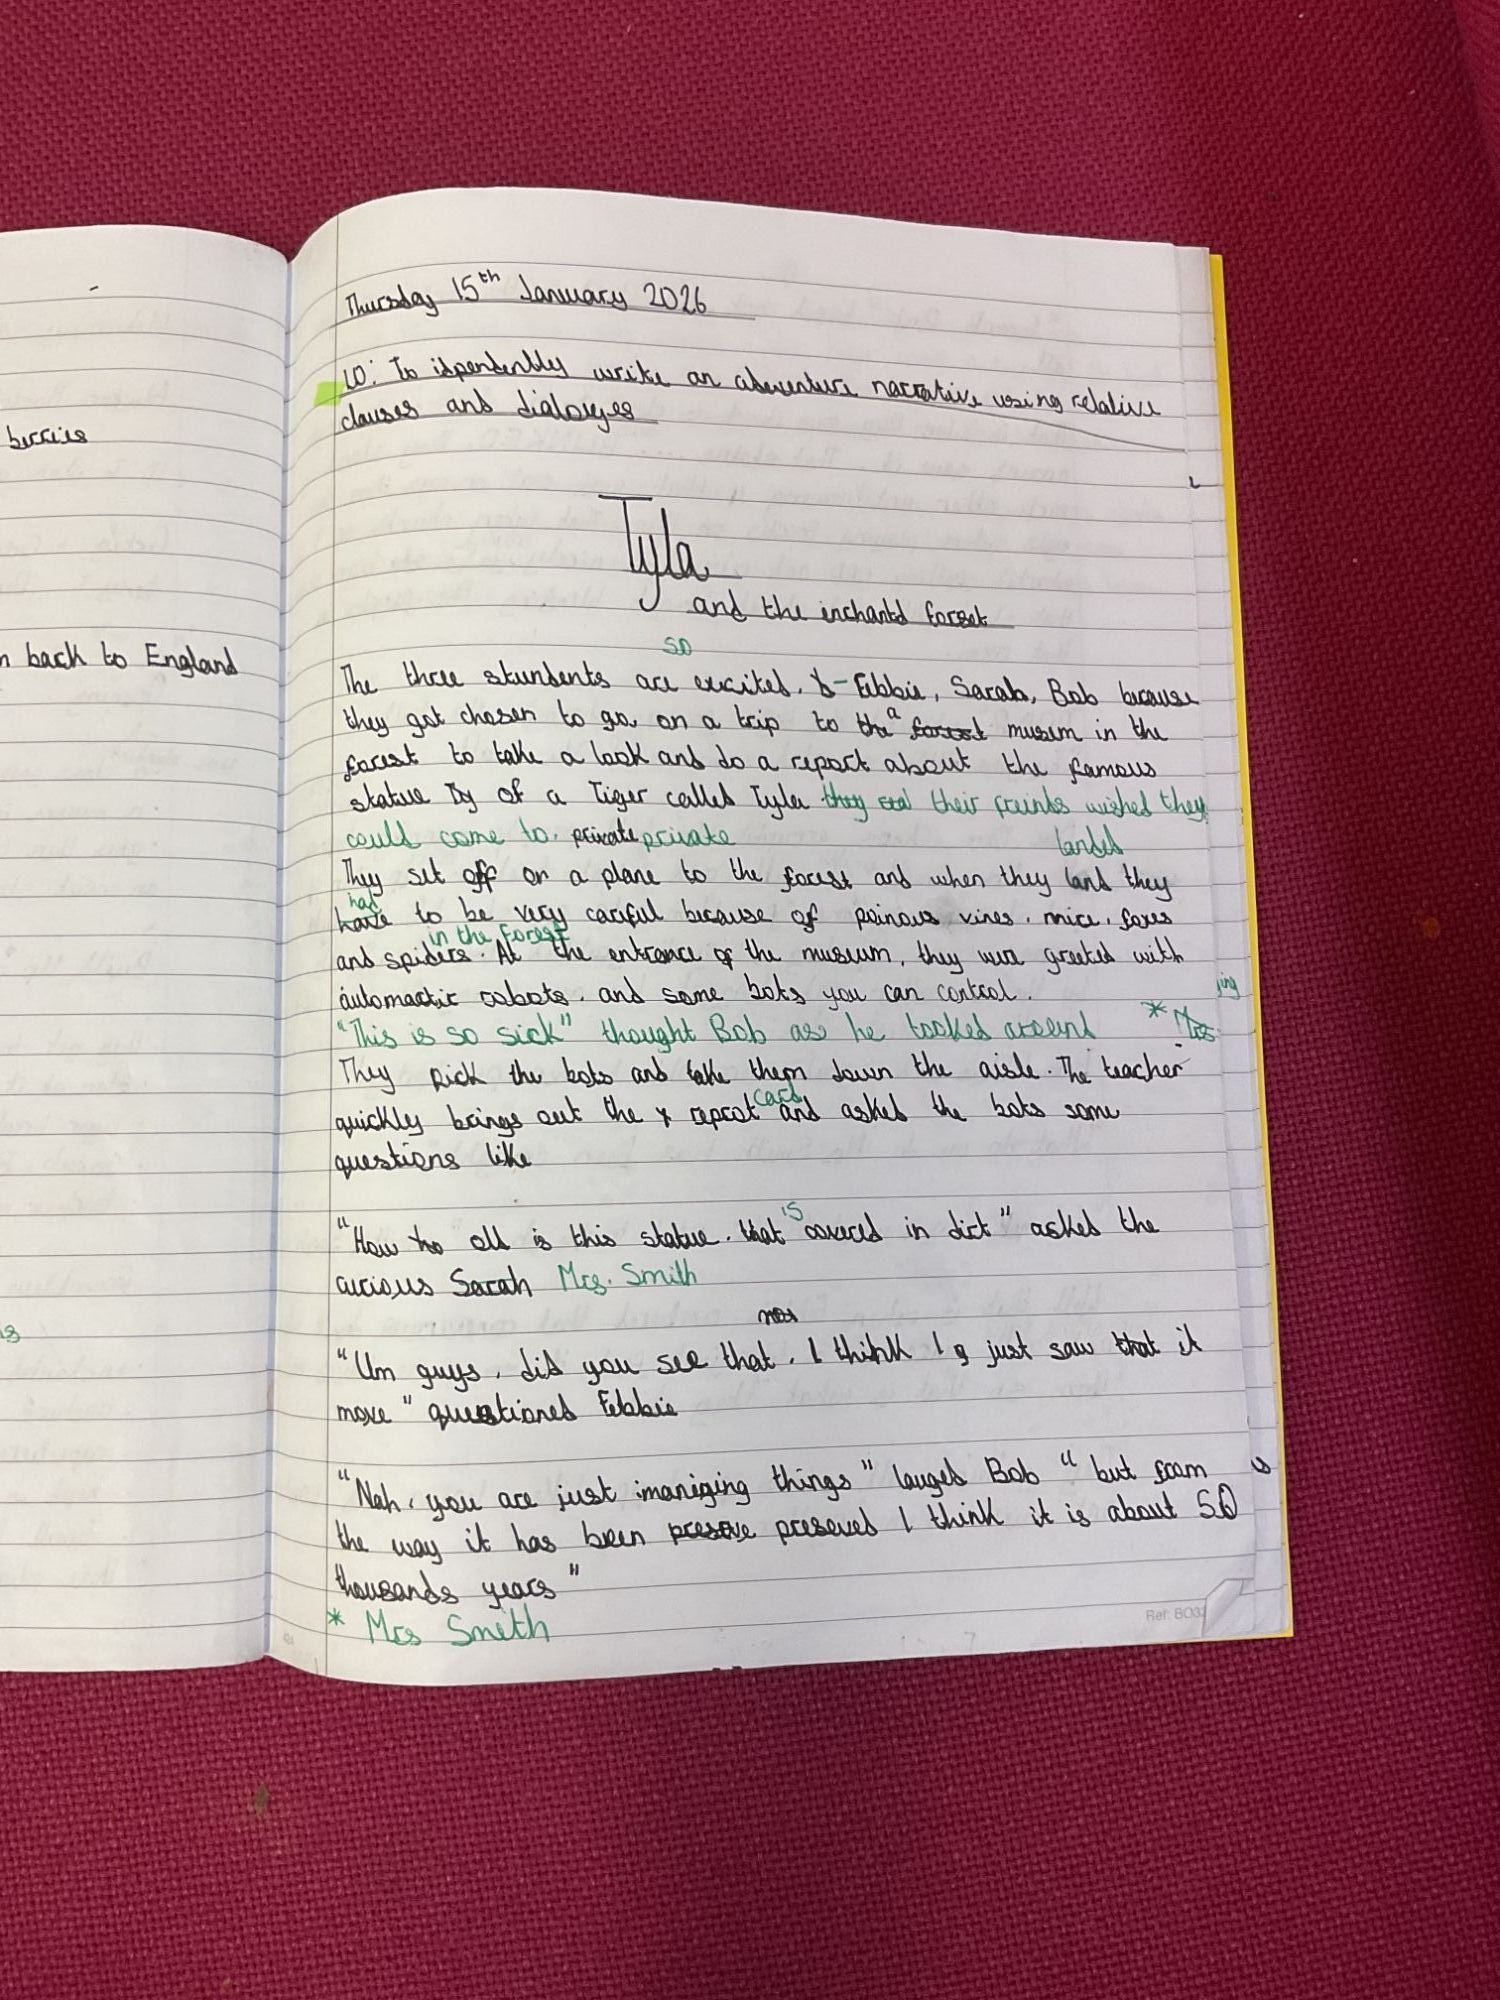 berries
n back to England
Thursday 15th January 2026
LO: To idpendentlly write an abventure narrative using relative
clauses and dialouges
Tyla
and the enchantd forest
so
The three stundents are excited. Febbie, Sarah, Bob because
they got chosen to go on a trip to the a forest musem in the
forest to take a look and do a report about the famous
statue Ty of a Tiger called Tyler they their freinds wished they
could come to. private private
landed
They set off on a plane to the forest and when they land they
had
have to be very careful because of poinous vines, mice, foxes
in the forest
and spiders. At the entrance of the museum, they were greeted with
automactic robots. and some bots you can control.
ing
"This is so sick" thought Bob as he looked around * Mrs
They pick the bots and take them down the aisle. The teacher
card
quickly brings out the reprot and asked the bots some
questions like
is
"How old is this statue. that covered in dirt" asked the
curious Sarah Mrs. Smith
"Um guys, did you see that, I think I just saw that it
move" questioned Febbie
"Nah, you are just imaniging things" lauged Bob "but from
the way it has been preserve preseved I think it is about 50
thousands years"
* Mrs Smith
Ref: BO32